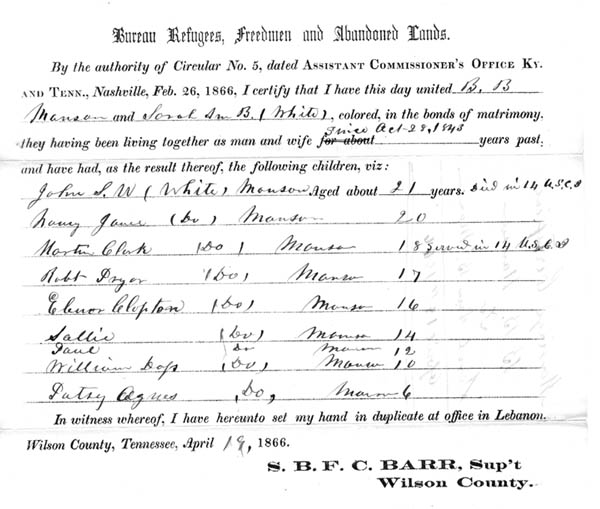 Bureau Refugees, Freedmen and Abandoned Lands.
By the authority of Circular No. 5, dated Assistant Commissioner's Office Ky.
and Tenn., Nashville, Feb. 26, 1866, I certify that I have this day united B. B
Manson and Sarah An B. (White), colored, in the bonds of matrimony.
since Oct 28, 1843
they having been living together as man and wife for about years past,
and have had, as the result thereof, the following children, viz:
John S. W (White) Manson Aged about 21 years. Died in 14 U.S.C.I
Nancy Jane (Do) Manson 20
Martin Clark (Do) Manson 18 Served in 14 U.S.C.I
Robt Pryor (Do) Manson 17
Elenor Clopton (Do) Manson 16
Sallie (Do) Manson 14
Paul Do Manson 12
William (Do) Manson 10
Patsy Agnes Do, Manson 6
In witness whereof, I have hereunto set my hand in duplicate at office in Lebanon.
Wilson County, Tennessee, April 19, 1866.
S. B. F. C. BARR, Sup't
Wilson County.